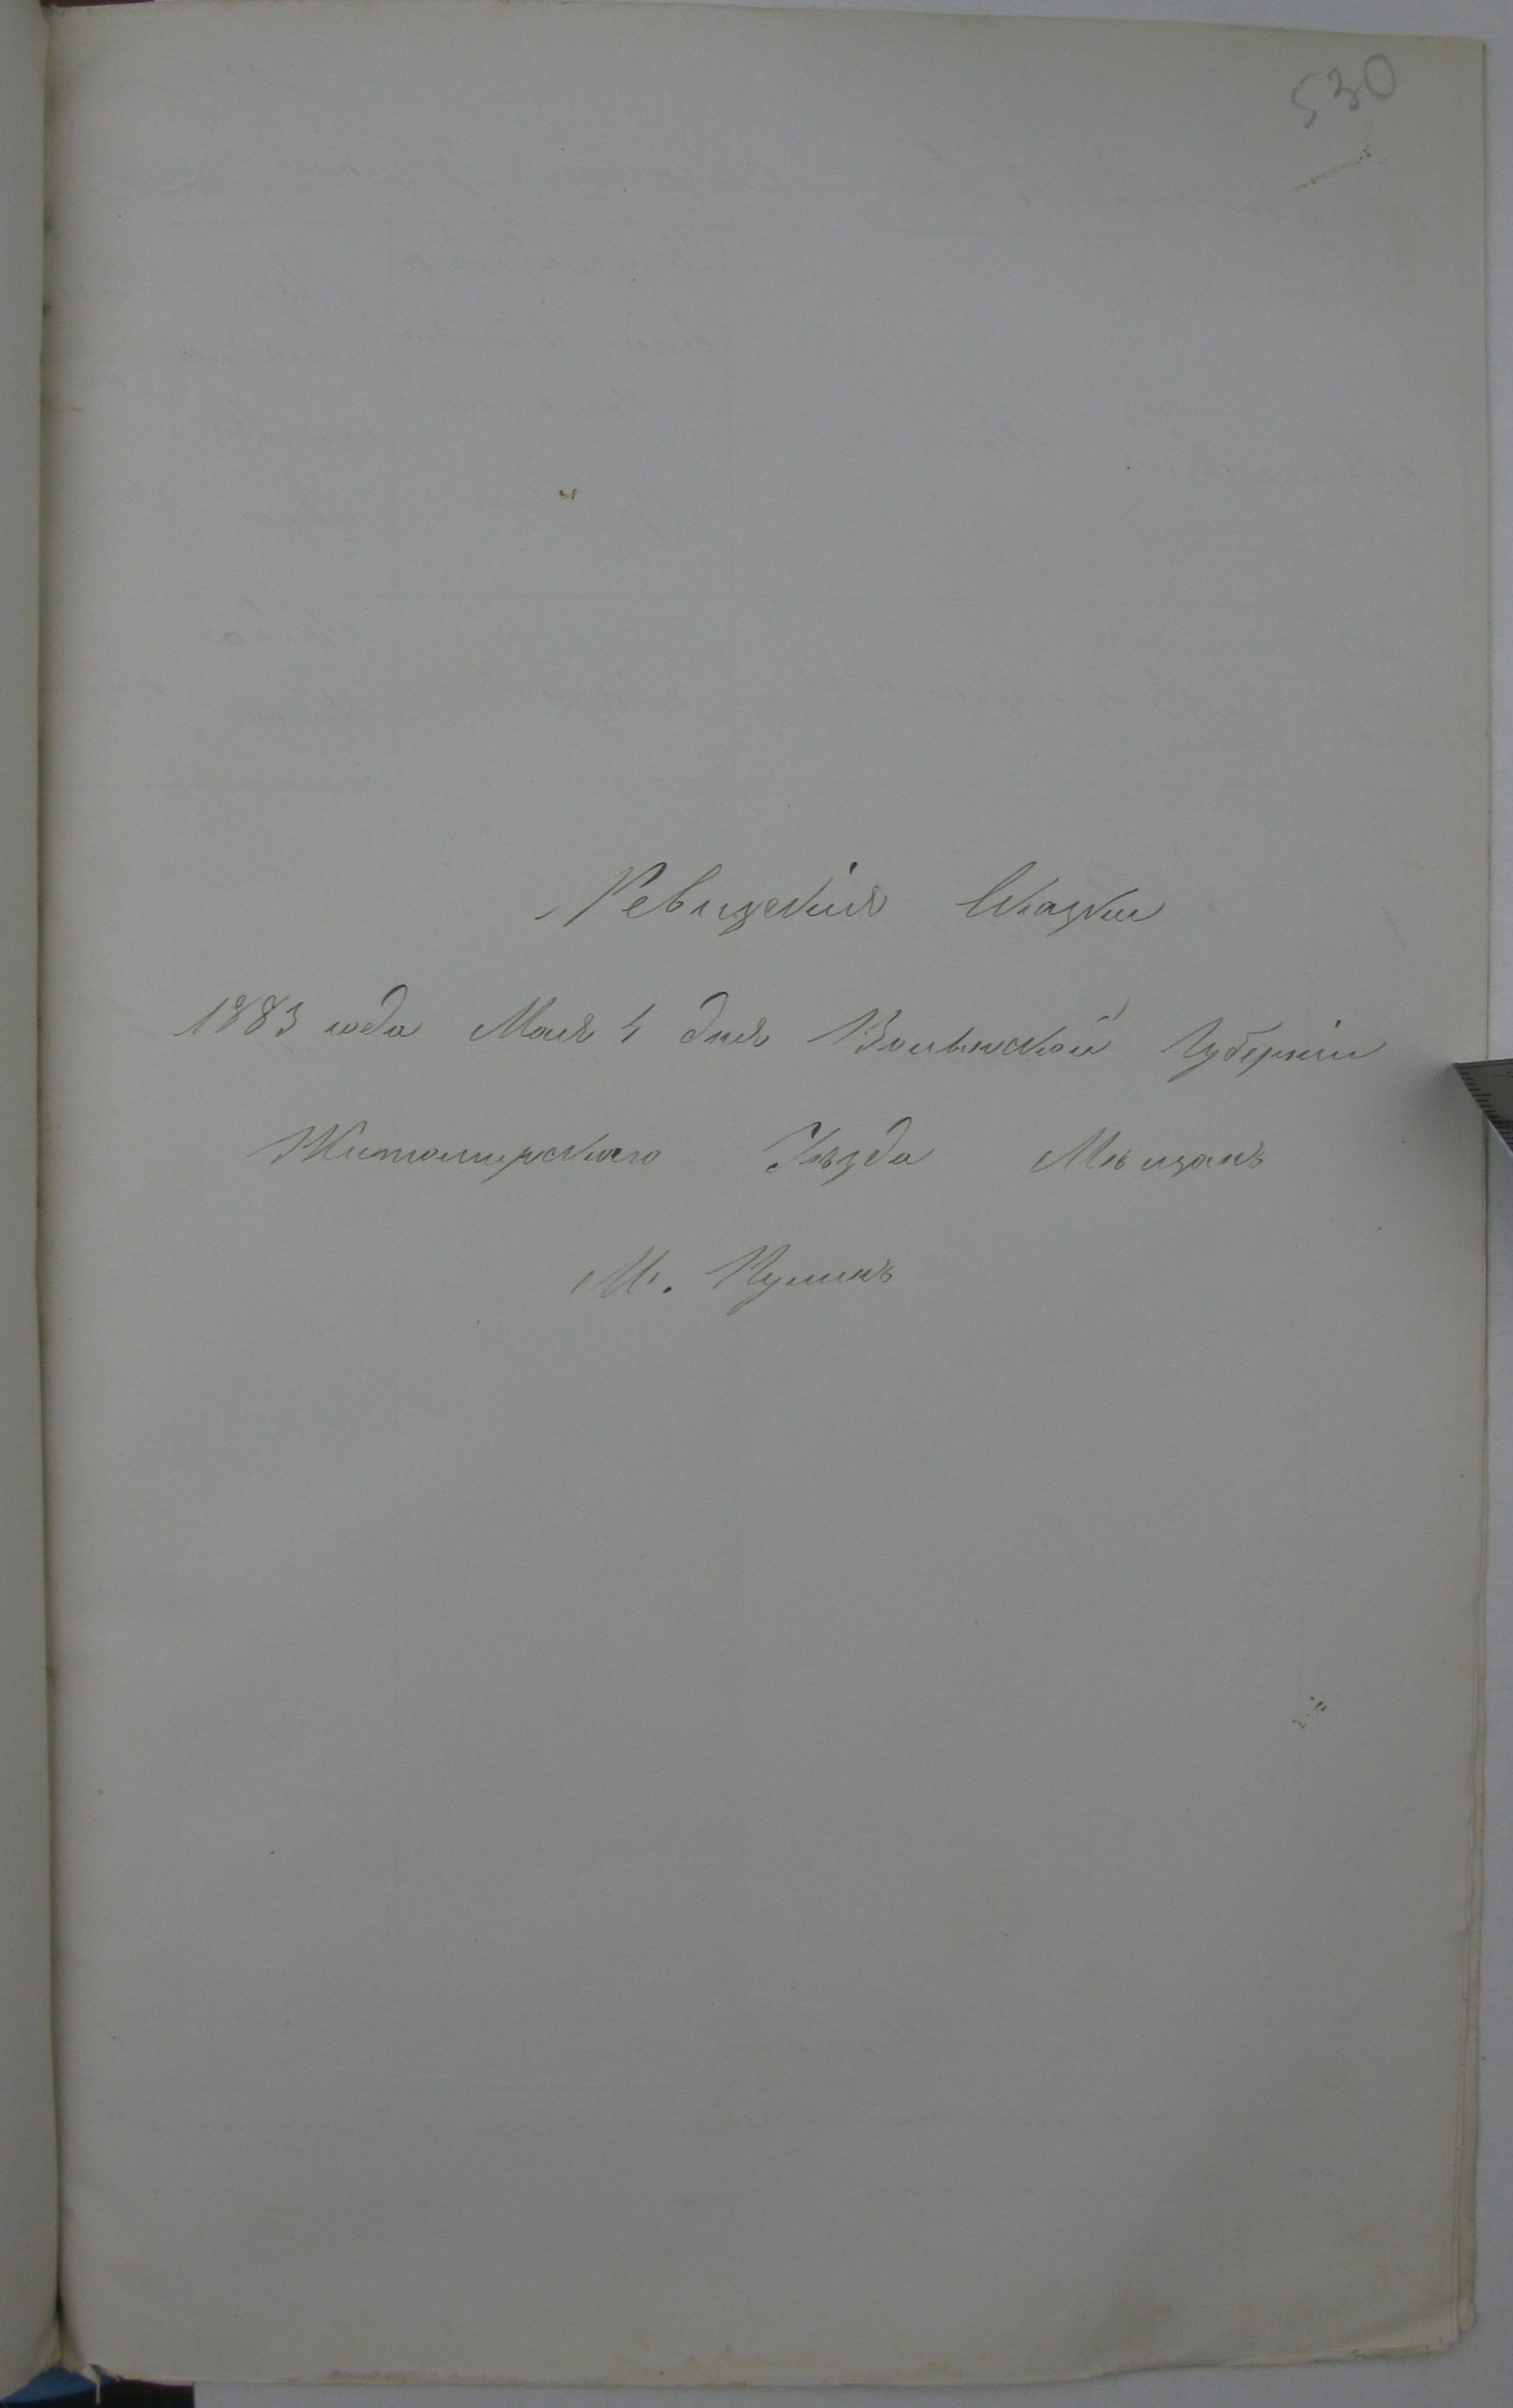 530
Ревизскія Сказки
1883 года Мая 4 дня Волынской Губерніи
Житомирскаго Уѣзда Мѣщанъ
М. Пулинъ